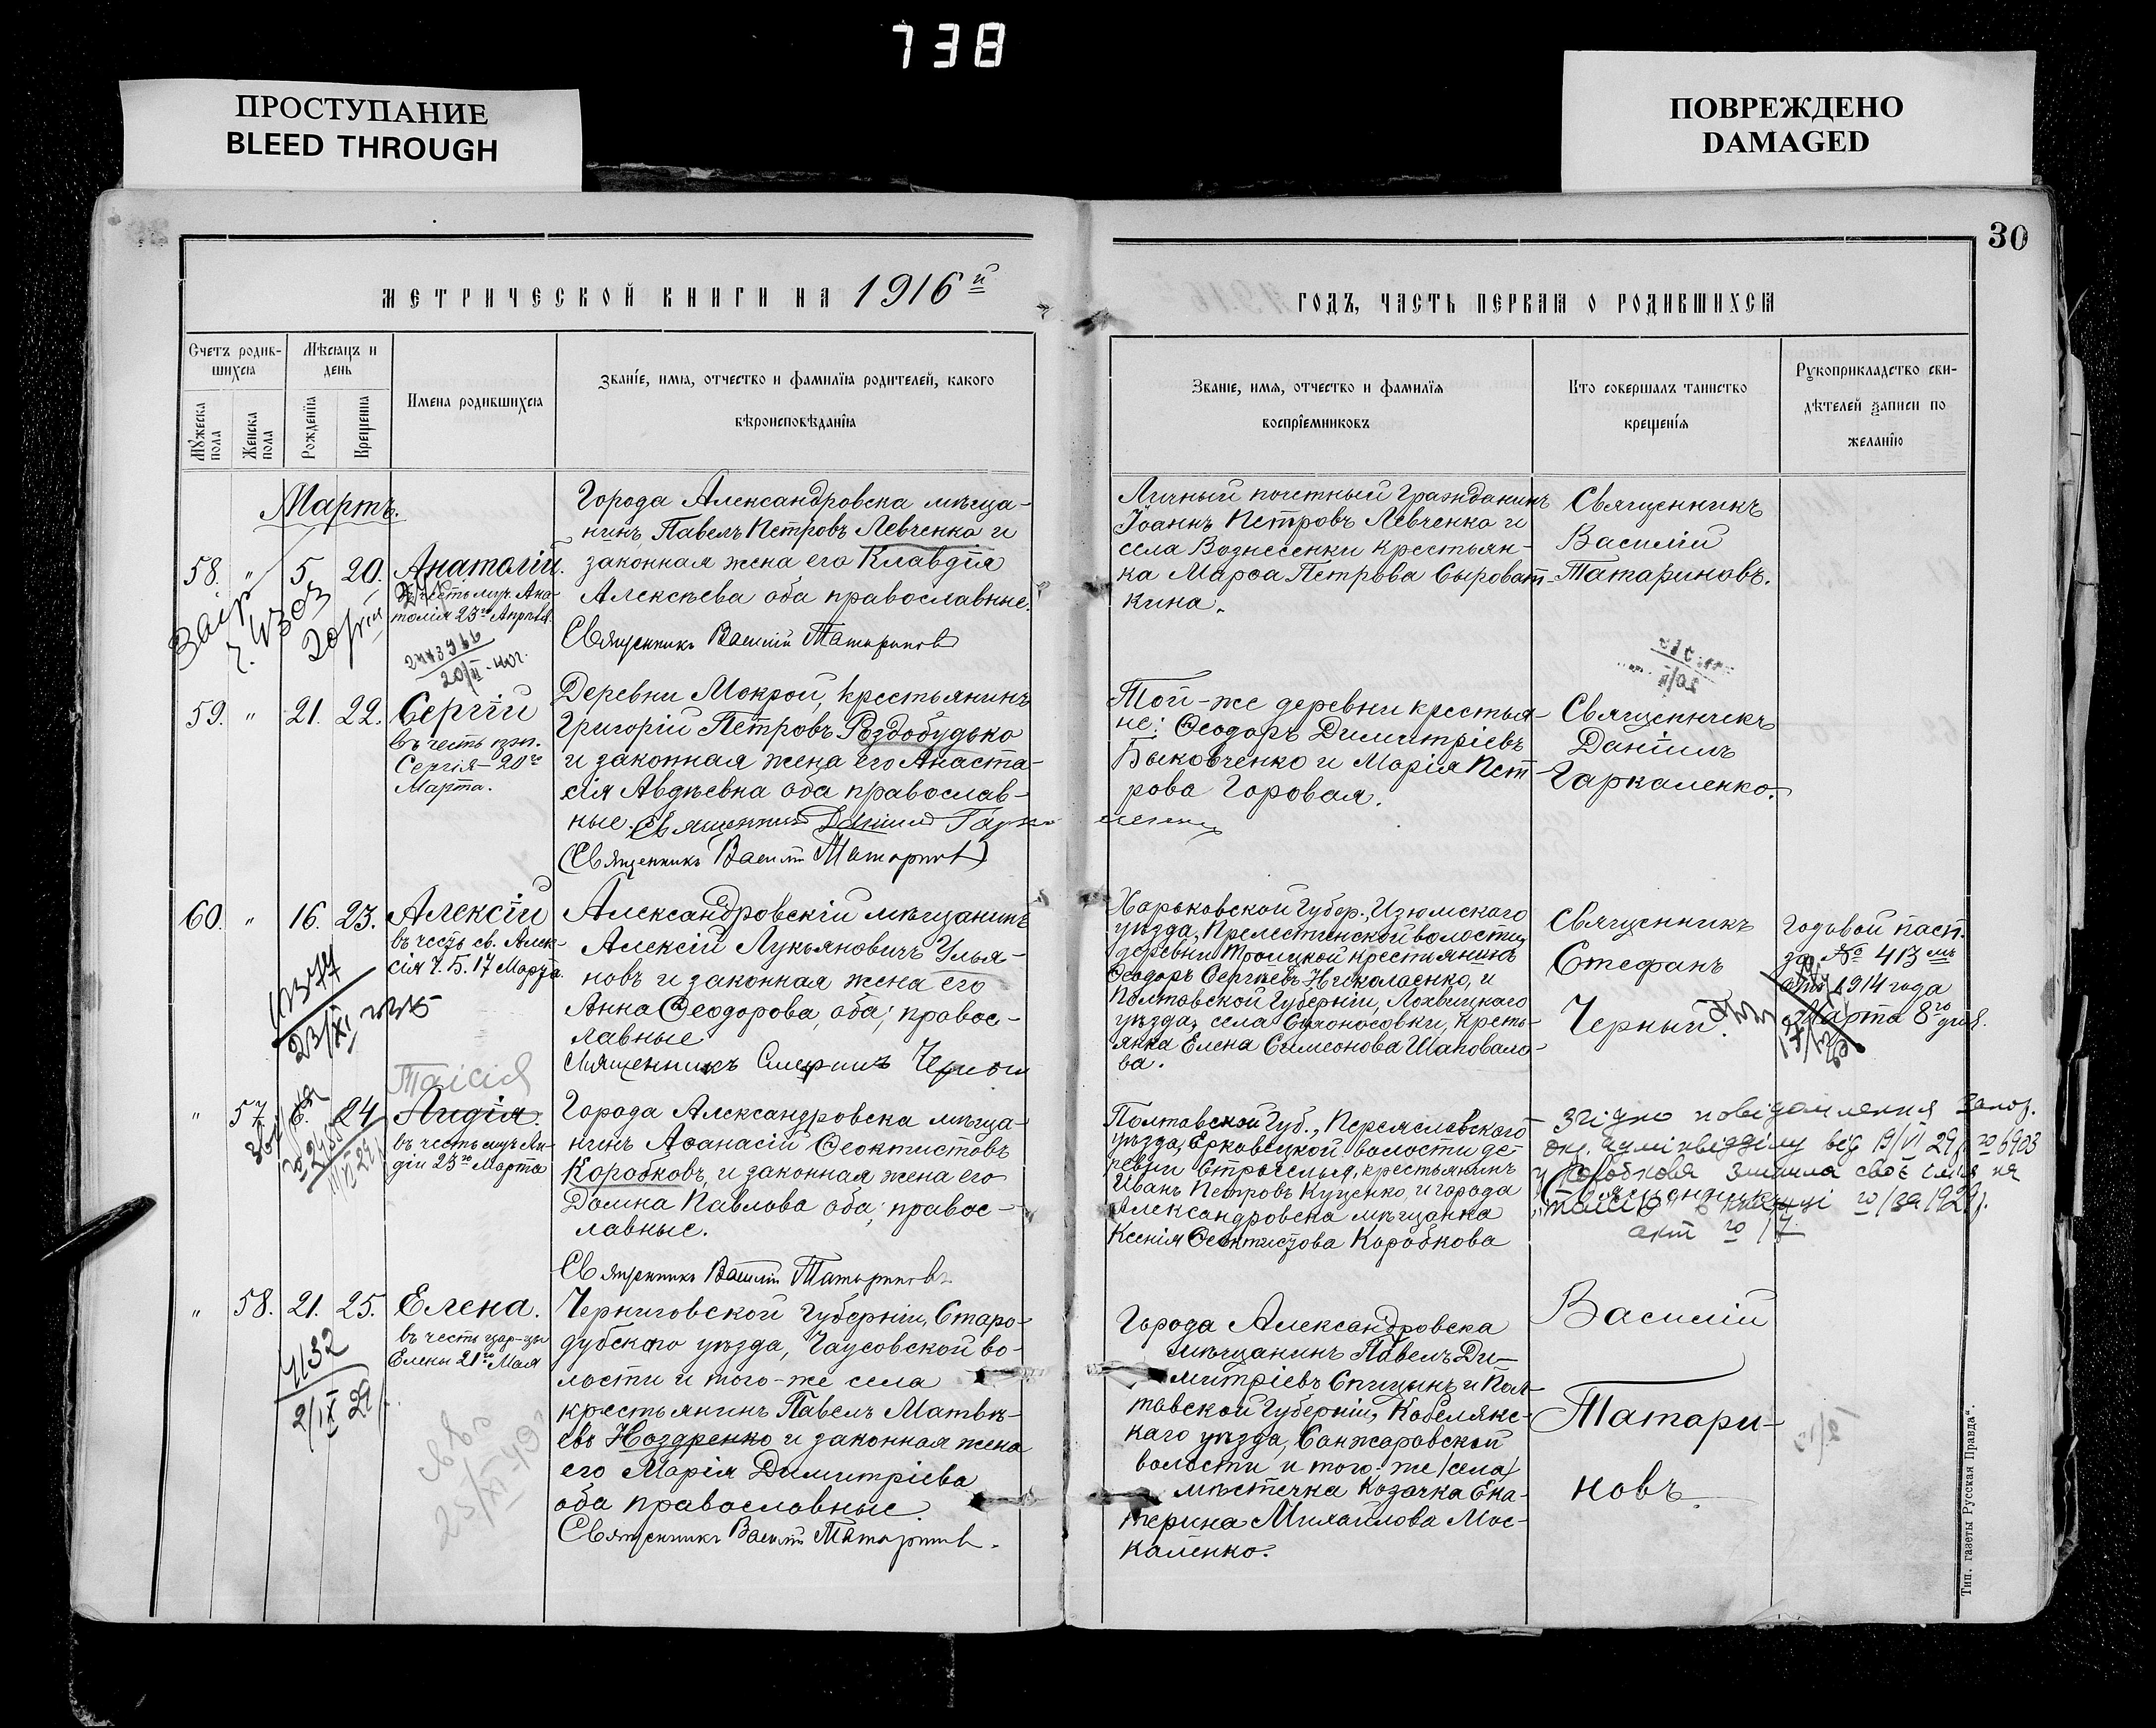 738
ПРОСТУПАНИЕ
BLEED THROUGH
ПОВРЕЖДЕНО
DAMAGED
30
МЕТРИЧЕСКОЙ КНИГИ НА 1916й
ГОДЪ, ЧАСТЬ ПЕРВАЯ О РОДИВШИХСЯ
Счетъ родив-
шихся
Мѣсяцъ и
день
Имена родившихся
Званіе, имя, отчество и фамилія родителей, какого
вѣроисповѣданія
Мужеска пола
Женска пола
Рожденія
Крещенія
Званіе, имя, отчество и фамилія
воспріемниковъ
Кто совершалъ таинство
крещенія
Рукоприкладство сви-
дѣтелей записи по
желанію
Мартъ.
58. " 5. 20. Анатолій.
въ честь муч. Ана-
толія 23го Апрѣля.
2443966
20/II
Города Александровска мѣща-
нинъ Павелъ Петровъ Левченко и
законная жена его Клавдія
Алексѣева оба православные.
Священникъ Василій Татариновъ
Личный почетный Гражданинъ
Іоаннъ Петровъ Левченко и
села Вознесенки крестьян-
ка Марѳа Петрова Сыроват-
кина.
Священникъ
Василій
Татариновъ.
59. " 21. 22. Сергій
въ честь прп.
Сергія 20го
Марта.
Деревни Мокрой, крестьянинъ
Григорій Петровъ Роздобудько
и законная жена его Анаста-
сія Авдѣевна оба православ-
ные. Священникъ Даніилъ Гарка-
ленко
(Священникъ Василій Татариновъ)
Той-же деревни крестья-
не: Ѳеодоръ Димитріевъ
Быковченко и Марія Пет-
рова Горовая.
Священникъ
Даніилъ
Гаркаленко.
60. " 16. 23. Алексій
въ честь св. Алек-
сія Ч. Б. 17 Марта.
23/XI
Александровскій мѣщанинъ
Алексій Лукьяновичъ Улья-
новъ и законная жена его
Анна Ѳеодорова, оба; правос-
лавные
Священникъ Стефанъ Черный
Харьковской Губер., Изюмскаго
уѣзда, Прелестненской волости,
деревни Троицкой крестьянинъ
Ѳеодоръ Сергѣевъ Николаенко, и
Полтавской Губерніи, Лохвицкаго
уѣзда, села Сѣноносовки, кресть-
янка Елена Симеонова Шаповало-
ва.
Священникъ
Стефанъ
Черный.
Годовой пасп.
за № 413мъ
отъ 1914 года
Марта 8го дня.
Таісія
" 57. 24 Лидія.
въ честь муч. Ли-
діи 23го Марта
Города Александровска мѣща-
нинъ Аѳанасій Ѳеоктистовъ
Коробковъ, и законная жена его
Домна Павлова оба; правос-
лавные.
Священникъ Василій Татариновъ.
Полтавской Губ., Переяславскаго
уѣзда, Ерковецкой волости де-
ревни Строкелья, крестьянинъ
Иванъ Петровъ Куценко, и города
Александровска мѣщанка
Ксенія Ѳеоктистова Коробкова
Згідно повідомлення Запор.
окр. адмінвідділу від 19/VI 29 р. № 6903
Коробкова змінила своє імя на
"Таісія"
Священникъ
акт № 17
" 58. 21. 25. Елена.
въ честь цар-цы
Елены 21го Мая
4132
2/IX 27 р.
Черниговской Губерніи, Старо-
дубского уѣзда, Чаусовской во-
лости и того-же села
крестьянинъ Павелъ Матвѣ-
евъ Ноздренко и законная жена
его Марія Димитріева
оба православные.
Священникъ Василій Татариновъ.
Города Александровска
мѣщанинъ Павелъ Ди-
митріевъ Спицынъ и Пол-
тавской Губерніи, Кобелякс-
каго уѣзда, Санжаровской
волости и того-же /села/
мѣстечка Козачка Ека-
терина Михайлова Мос-
каленко.
Василій
Татари-
новъ.
Тип. газеты „Русская Правда“.